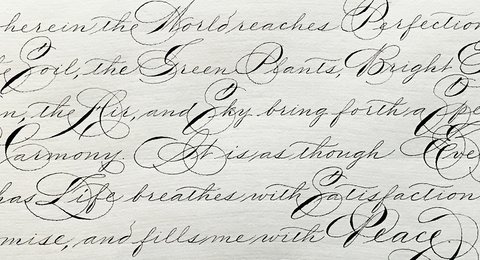 herein the World reaches Perfection
Soil, the Green Plants, Bright
the Air, and Sky bring forth a
Harmony. It is as though
has Life breathes with Satisfaction
mise, and fills me with Peace